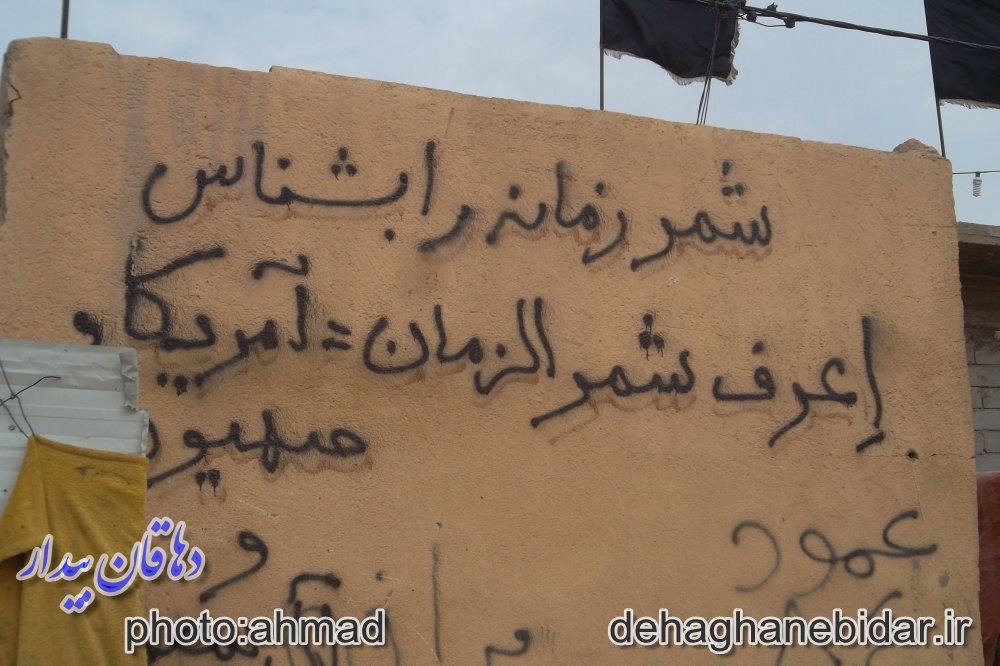 شمر زمانه را بشناس
إعرف شمر الزمان = آمریکا و
صهیو
عمود
و
دهاقان بیدار
photo:ahmad
dehaghanebidar.ir